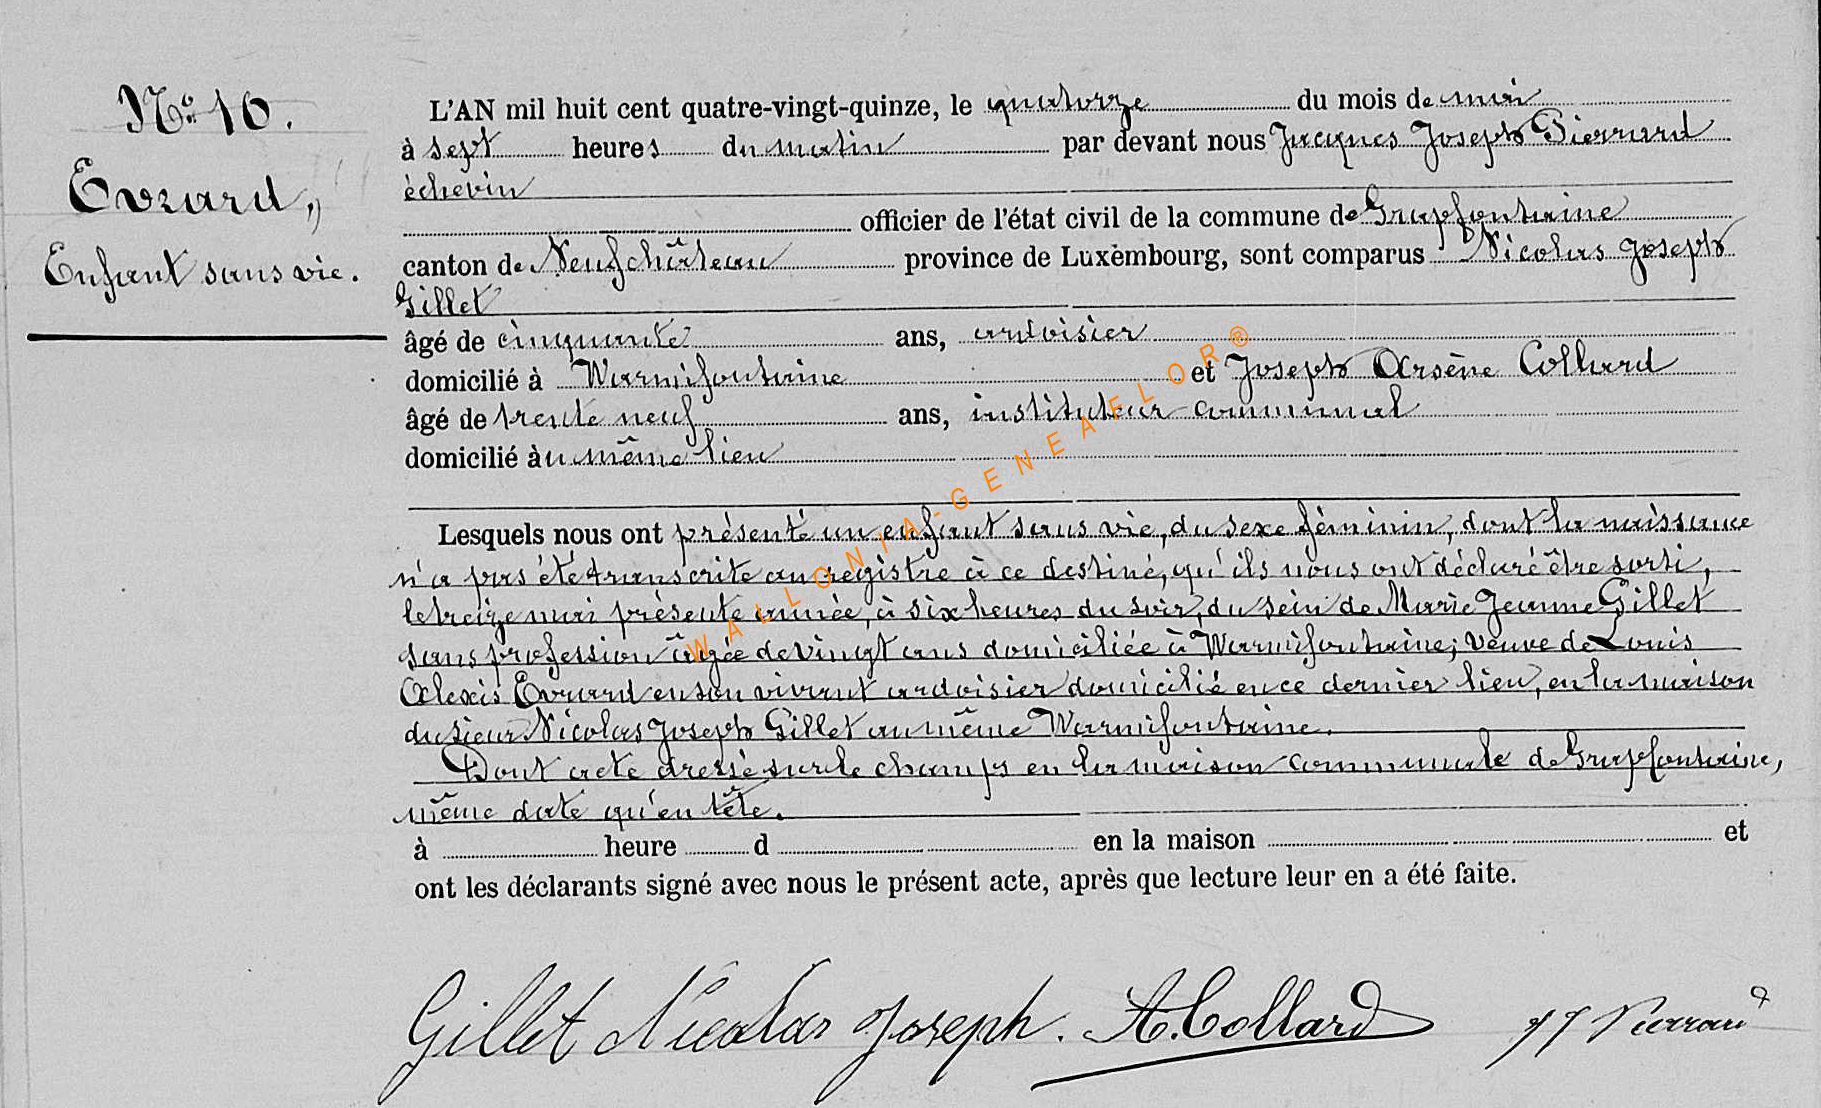 N° 10.
Evrard,
Enfant sans vie.
L'AN mil huit cent quatre-vingt-quinze, le quatorze du mois de mai
à sept heures du matin par devant nous Jacques Joseph Pierrard
échevin
officier de l'état civil de la commune de Grapfontaine
canton de Neufchâteau province de Luxembourg, sont comparus Nicolas Joseph
Gillet
âgé de cinquante ans, ardoisier
domicilié à Warmifontaine et Joseph Arsène Collard
âgé de trente neuf ans, instituteur communal
domicilié àu même lieu
Lesquels nous ont présenté un enfant sans vie, du sexe féminin, dont la naissance
n'a pas été transcrite au registre à ce destiné, qu'ils nous ont déclaré être sorti,
le treize mai présente année, à six heures du soir, du sein de Marie Jeanne Gillet
sans profession âgée de vingt ans domiciliée à Warmifontaine, veuve de Louis
Alexis Evrard en son vivant ardoisier domicilié en ce dernier lieu, en la maison
du sieur Nicolas Joseph Gillet au même Warmifontaine.
Dont acte dressé sur le champs en la maison communale de Grapfontaine,
même date qu'en tête.
à heure d en la maison et
ont les déclarants signé avec nous le présent acte, après que lecture leur en a été faite.
Gillet Nicolas Joseph. A. Collard JJ Pierrard
WALLONIA-GENEAFLOR®